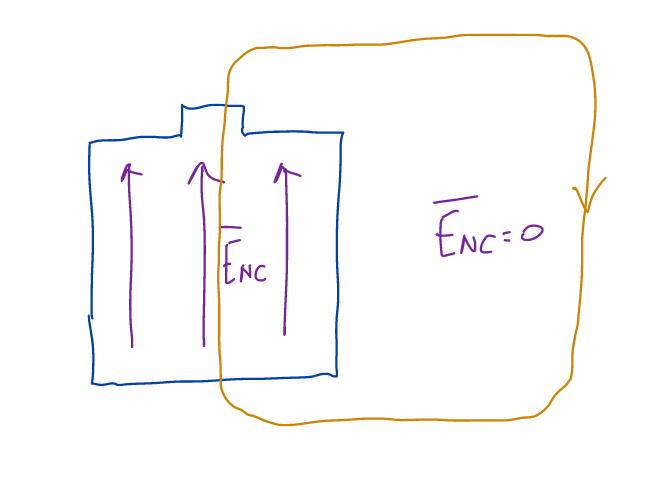 E̅NC
E̅NC=0